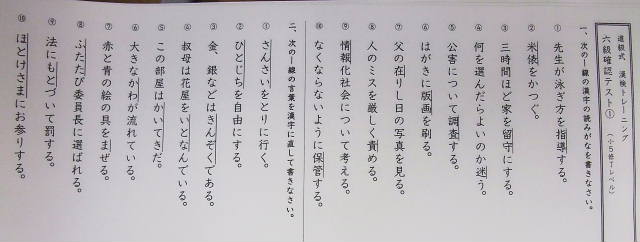 道級式 漢検トレーニング
六級確認テスト① (小5修了レベル)
一、次の―線の漢字の読みがなを書きなさい。
① 先生が泳ぎ方を指導する。
② 米俵をかつぐ。
③ 三時間ほど家を留守にする。
④ 何を選んだらよいのか迷う。
⑤ 公害について調査する。
⑥ はがきに版画を刷る。
⑦ 父の在りし日の写真を見る。
⑧ 人のミスを厳しく責める。
⑨ 情報化社会について考える。
⑩ なくならないように保管する。
二、次の―線の言葉を漢字に直して書きなさい。
① さんさいをとりに行く。
② ひとじちを自由にする。
③ 金、銀などはきんぞくである。
④ 叔母は花屋をいとなんでいる。
⑤ この部屋はかいてきだ。
⑥ 大きなかわが流れている。
⑦ 赤と青の絵の具をまぜる。
⑧ ふたたび委員長に選ばれる。
⑨ 法にもとづいて罰する。
⑩ ほとけさまにお参りする。